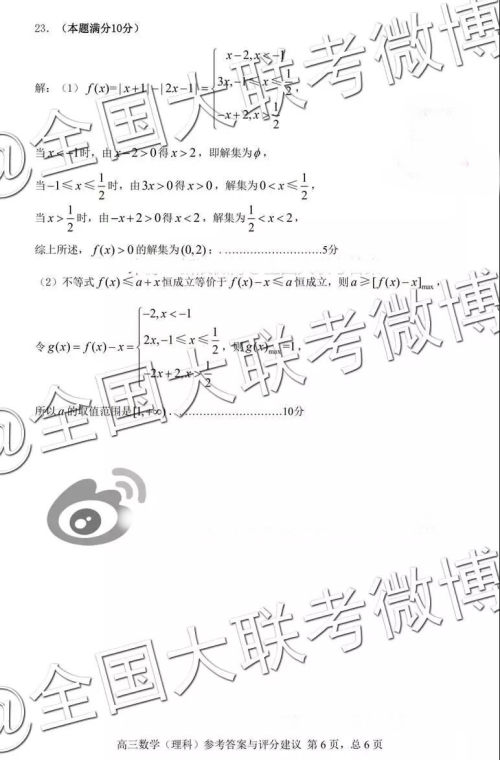 23. （本题满分10分）
解：（1） f(x)=|x+1|-|2x-1|= { x-2, x<-1
3x, -1≤x≤1/2,
-x+2, x>1/2
当x<-1时，由x-2>0得x>2，即解集为ϕ，
当-1≤x≤1/2时，由3x>0得x>0，解集为0<x≤1/2，
当x>1/2时，由-x+2>0得x<2，解集为1/2<x<2，
综上所述，f(x)>0的解集为(0,2)；……………………5分
（2）不等式f(x)≤a+x恒成立等价于f(x)-x≤a恒成立，则a≥[f(x)-x]max，
令g(x)=f(x)-x= { -2, x<-1
2x, -1≤x≤1/2，则g(x)max=1，
-2x+2, x>1/2
所以a的取值范围是[1,+∞)．……………………10分
高三数学（理科）参考答案与评分建议 第 6 页，总 6 页
@全国大联考微博
@全国大联考微博
@全国大联考微博